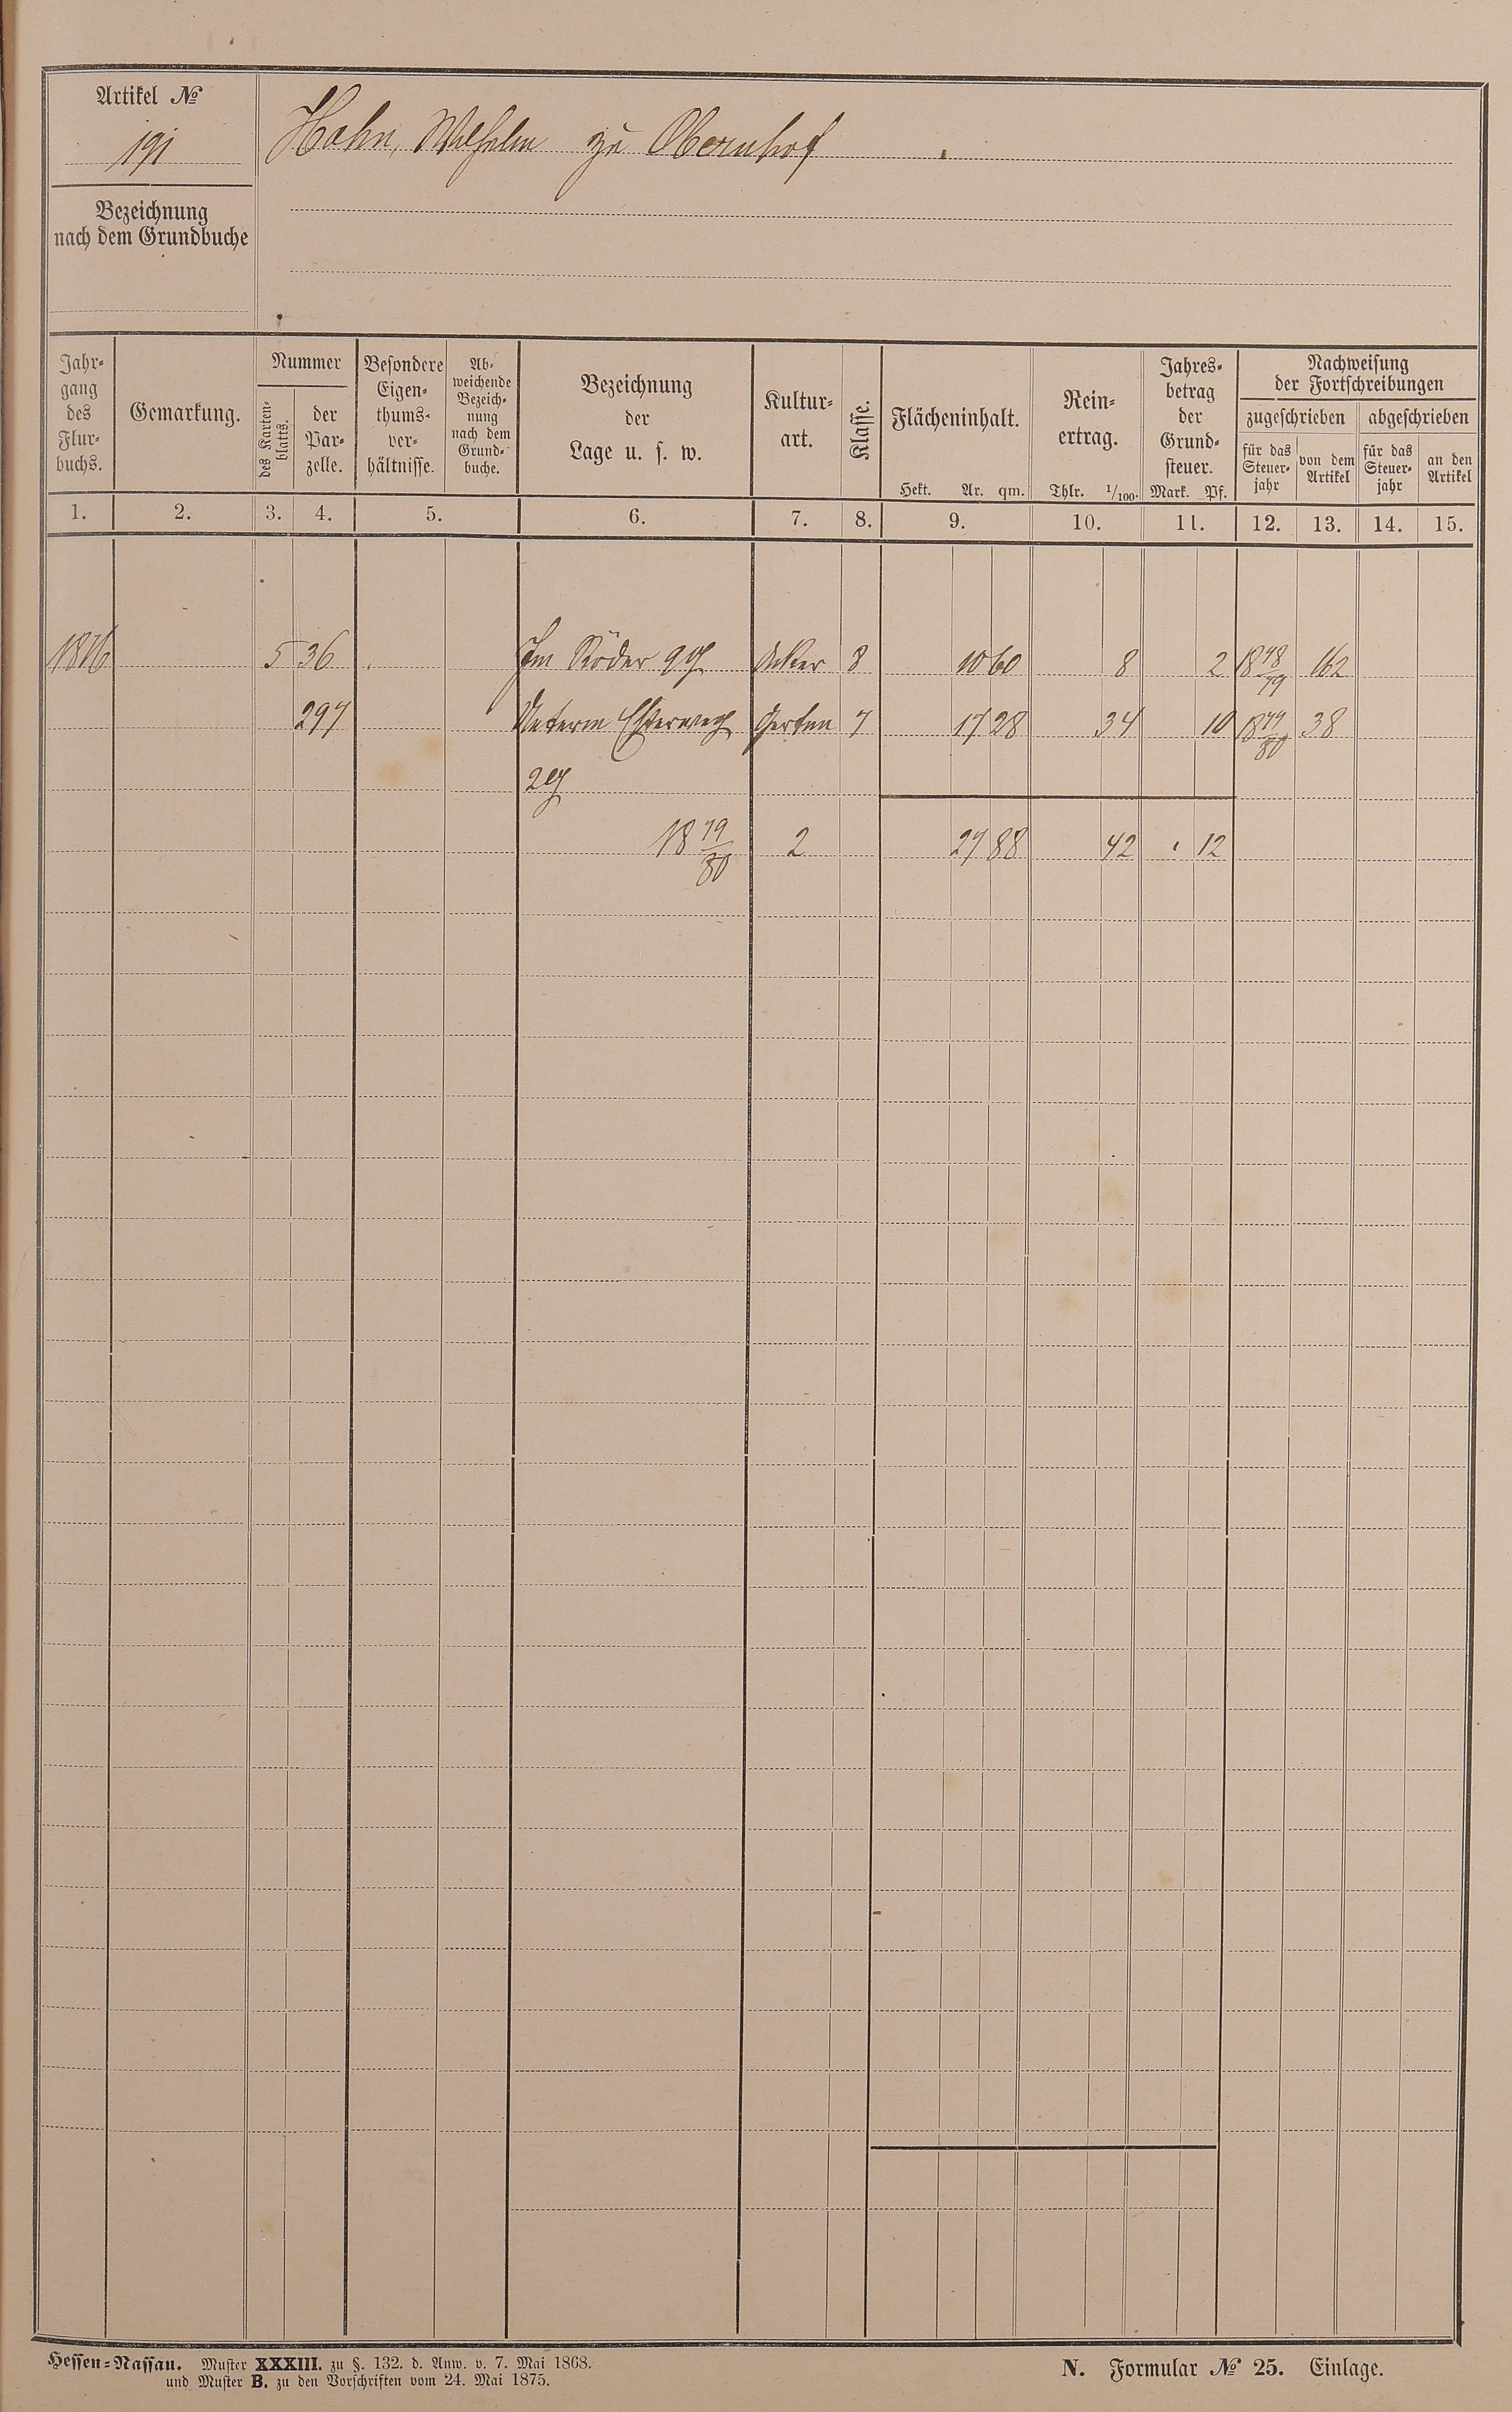 Artikel №
191
Hahn, Wilhelm zu Obernhof
Bezeichnung
nach dem Grundbuche
Jahr-
gang
des
Flur-
buchs.
Gemarkung.
Nummer
des Karten-
blatts.
der
Par-
zelle.
Besondere
Eigen-
thums-
ver-
hältnisse.
Ab-
weichende
Bezeich-
nung
nach dem
Grund-
buche.
Bezeichnung
der
Lage u. s. w.
Kultur-
art.
Klasse.
Flächeninhalt.
Hekt. Ar. qm.
Rein-
ertrag.
Thlr. 1/100.
Jahres-
betrag
der
Grund-
steuer.
Mark. Pf.
Nachweisung
der Fortschreibungen
zugeschrieben abgeschrieben
für das
Steuer-
jahr
von dem
Artikel
für das
Steuer-
jahr
an den
Artikel
1. 2. 3. 4. 5. 6. 7. 8. 9. 10. 11. 12. 13. 14. 15.
1876 5 36 Im Röder Acker 8 10 60 8 2 1878/79 162
297 Unterm Garten 7 17 28 34 10 1879/80 38
1879/80 2 27 88 42 12
Hessen-Nassau. Muster XXXIII. zu §. 132. d. Anw. v. 7. Mai 1868.
und Muster B. zu den Vorschriften vom 24. Mai 1875.
N. Formular № 25. Einlage.